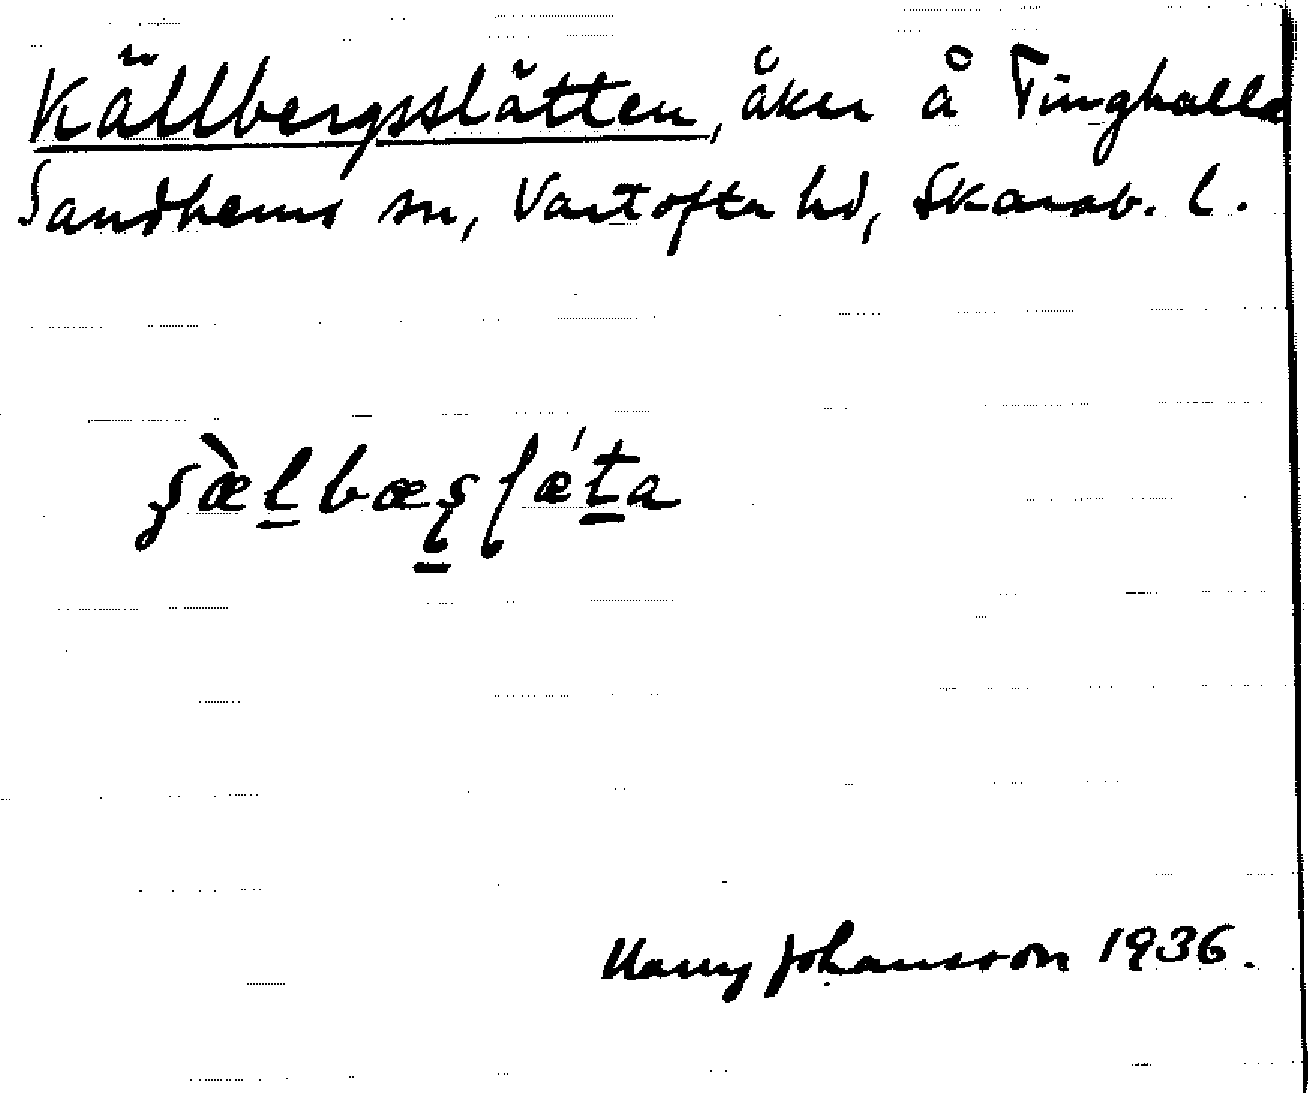 Källbergsslätten, åker å Tinghalla
Sandhems sn, Vartofta hd, Skarab. l.
Harry Johansson 1936.